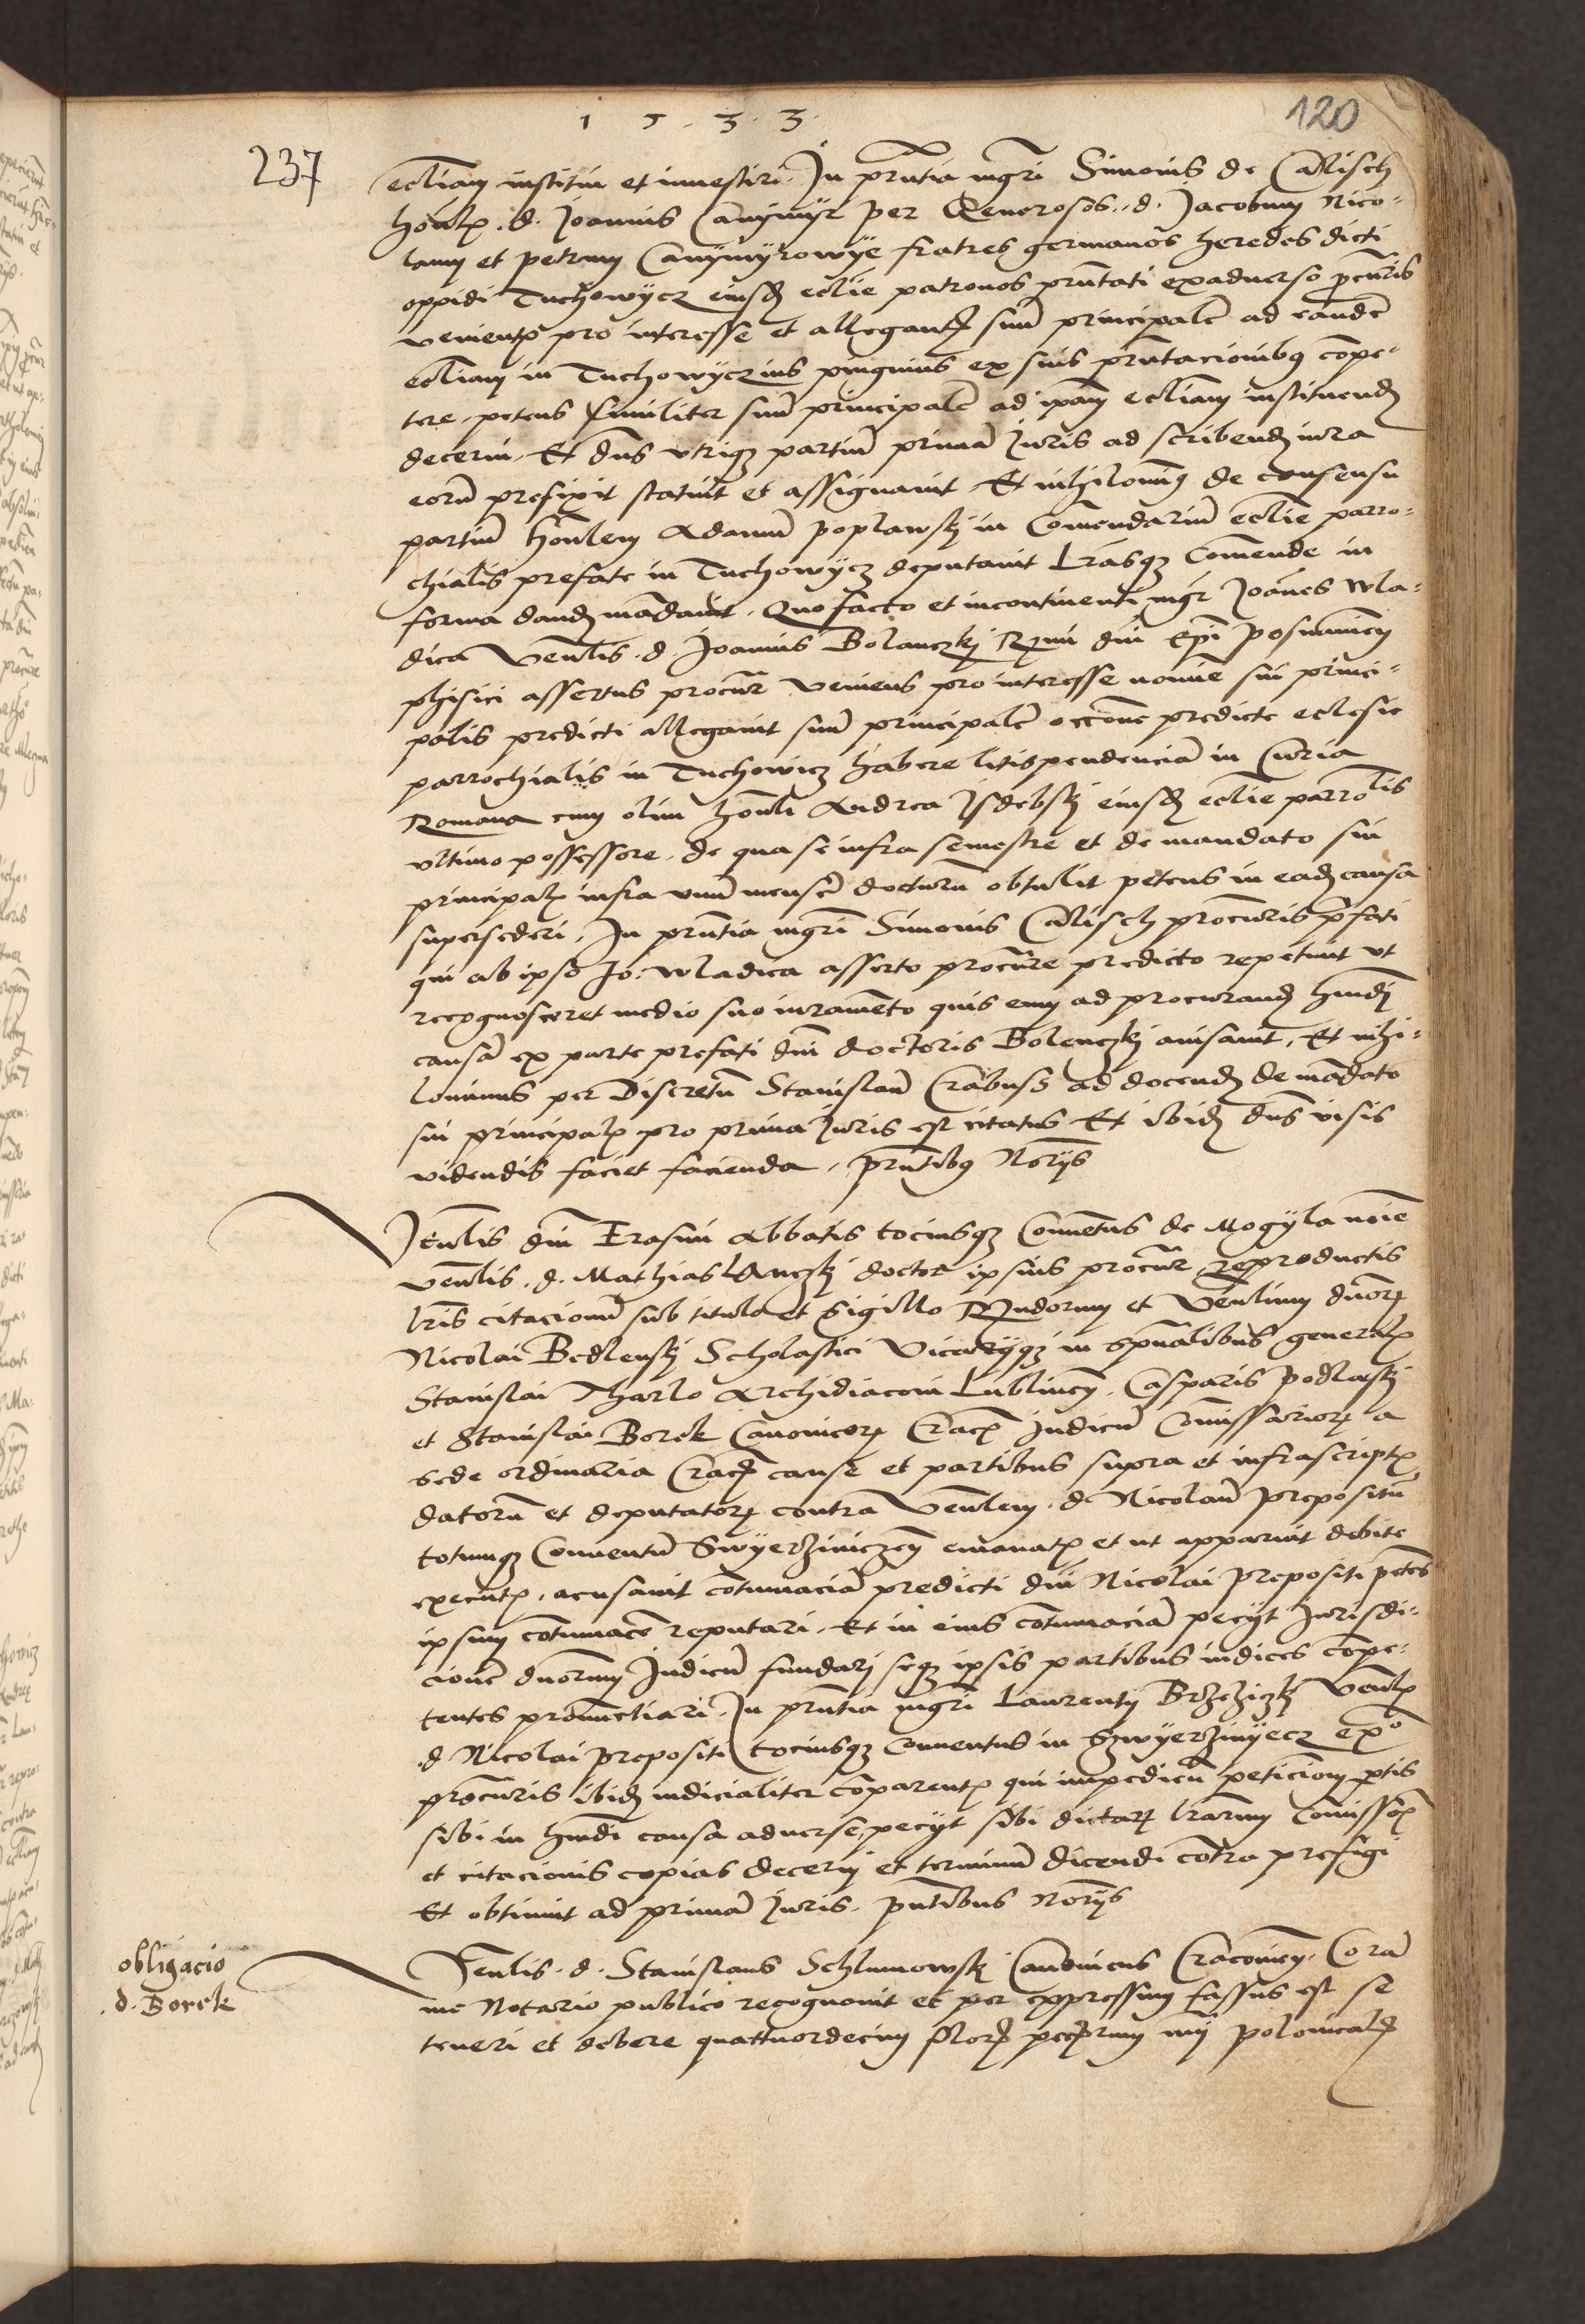 1533
120
237
eccliam institui et investiri. In prntia mgri Simonis de Calisch
honlis d. Joannis Canymyr per Generosos d. Jacobum Nico-
laum et petrum Canymyrowye fratres germanos heredes dicti
oppidi Tuchowycz eiusd ecclie patronos prntati exaduerso procuris
venientis pro interesse et allegantis suum principalem ad eandem
eccliam in Tuchowycz ius pinguius ex suis prntacionibus compe-
tere petens similiter suum principalem ad ipam eccliam instituend
decerni. Et dns vtrique partium primam Juris ad scribend iura
eorum prefixit statuit et assignauit Et nihilominus de consensu
partium honlem Adamum poplawskj in Comendarium ecclie parro-
chialis prefate in Tuchowycz deputauit lrasque Comende in
forma dand mandauit. Quo facto et incontinenti mgr Joannes wla-
dica Venlis d. Joannis Bolanczkj Rmi dni Epi posnanien
phisici assertus procur veniens pro interesse nomine sui princi-
palis predicti allegauit suum principalem occone predicte eclesie
parrochialis in Tuchowicz habere litispendenciam in Curia
Romana cum olim honli Andrea Jsdebskj eiusd ecclie parrolis
vltimo possessore de qua se infra semestre et de mandato sui
principalis infra vnum mensem docturum obtulit petens in ead causa
supersederi. In prntia mgri Simonis Calisch procuris prefati
qui ab ipso Jo: wladica asserto procure predicto repetiuit vt
recognosceret medio suo iuramento quis eum ad procurand hmdi
causam ex parte prefati dni doctoris Bolenczkj auisauit. Et nihi-
lominus per Discretum Stanislaum Crabuss ad docend de mandato
sui principalis pro prima Juris est citatus Et ibid dns visis
videndis faciet facienda. prntibus Noriis
Venlis dni Erasmi Abbatis tociusque Conuentus de Mogyla noie
venlis d. Mathias Lanczkj doctor ipsius procur reproductis
lris citacionum sub titulo et sigillo Rndorum et Venlium dnorum
Nicolai Bedlenskj Scholastici Vicariique in spualibus generalis
Stanislai Tharlo Archidiaconi Lublinen Casparis podlaskj
et Stanislai Borek Canonicorum Crac Judicum Comissariorum a
sede ordinaria Crac cause et partibus supra et infrascriptis
datorum et deputatorum contra Venlem d. Nicolaum prepositum
totumque Conuentum Swyerziniczen emanatis et ut apparuit debite
executis. acusauit contumaciam predicti dni Nicolai prepositi petens
ipsum contumacem reputari. Et in eius contumaciam peciit Jurisdi-
cionem dnorum Judicum fundari seque ipsis partibus iudices compe-
tentes pronunctiari. In prntia mgri Laurentij Brzeziczkj Venlis
d. Nicolai prepositi tociusque Conuentus in Szwyerzinyecz exo
procuris ibid iudicialiter comparentis qui impediendo peticionem partis
sibi in hmdi causa aduerse, peciit sibi dictarum lrarum Comissois
et citacionis copias decerni et terminum dicendi contra prefigi
Et obtinuit ad primam Juris. pntibus Noriis
obligacio
d. Borek
Venlis d. Stanislaus Schlumowskj Canonicus Cracouien. Coram
me Notario publico recognouit et per expressum fassus est se
teneri et debere quattuordecim flor peccuniarum mij polonicalis